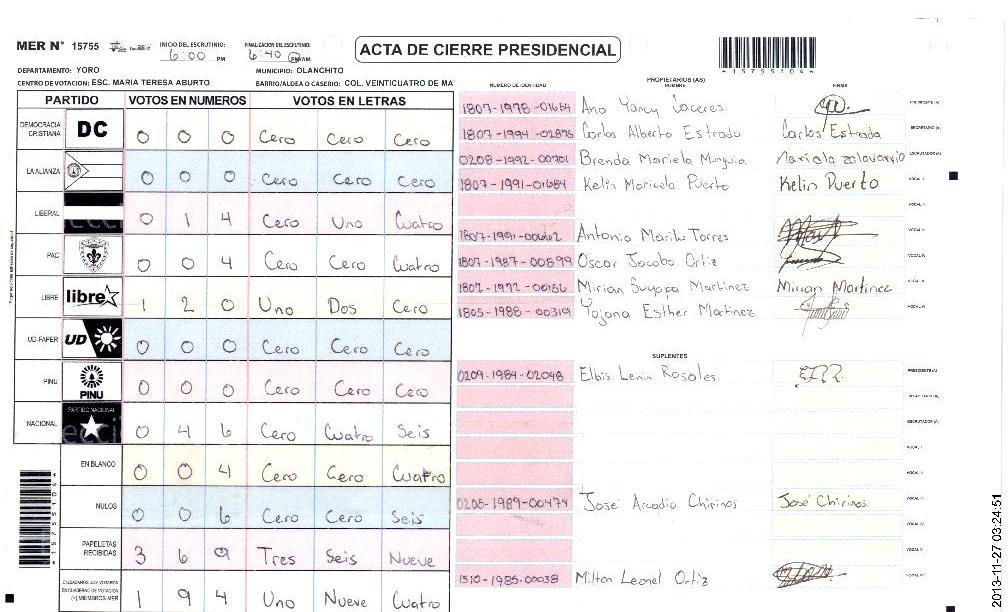 MER N° 15755
INICIO DEL ESCRUTINIO: 6:00 PM
FINALIZACION DEL ESCRUTINIO: 6:40 PM/AM
ACTA DE CIERRE PRESIDENCIAL
*15755106*
DEPARTAMENTO: YORO
MUNICIPIO: OLANCHITO
CENTRO DE VOTACION: ESC. MARIA TERESA ABURTO
BARRIO/ALDEA O CASERIO: COL. VEINTICUATRO DE MA
PARTIDO VOTOS EN NUMEROS VOTOS EN LETRAS
DEMOCRACIA CRISTIANA DC 0 0 0 Cero Cero Cero
LA ALIANZA 0 0 0 Cero Cero Cero
LIBERAL 0 1 4 Cero Uno Cuatro
PAC 0 0 4 Cero Cero Cuatro
LIBRE libre 1 2 0 Uno Dos Cero
UD-FAPER UD 0 0 0 Cero Cero Cero
PINU PINU 0 0 0 Cero Cero Cero
NACIONAL PARTIDO NACIONAL 0 4 6 Cero Cuatro Seis
EN BLANCO 0 0 4 Cero Cero Cuatro
NULOS 0 0 6 Cero Cero Seis
PAPELETAS RECIBIDAS 3 6 9 Tres Seis Nueve
CIUDADANOS QUE VOTARON EN CUADERNO DE VOTACION (+) MIEMBROS MER 1 9 4 Uno Nueve Cuatro
PROPIETARIOS (AS)
NUMERO DE IDENTIDAD NOMBRE FIRMA
1807-1978-01654 Ana Yancy Caceres PRESIDENTE (A)
1807-1994-02875 Carlos Alberto Estrada Carlos Estrada SECRETARIO (A)
0208-1992-00701 Brenda Mariela Munguia ESCRUTADOR (A)
1807-1991-01684 Kelin Maricela Puerto Kelin Puerto VOCAL I
VOCAL II
1807-1991-00662 Antonia Marilu Torres VOCAL III
1807-1987-00899 Oscar Jacobo Ortiz VOCAL IV
1807-1972-00156 Mirian Suyapa Martinez Mirian Martinez VOCAL V
1805-1988-00319 Yojana Esther Martinez VOCAL VI
SUPLENTES
0209-1984-02048 Elbis Lenin Rosales PRESIDENTE (A)
SECRETARIO (A)
ESCRUTADOR (A)
VOCAL I
VOCAL II
0205-1989-00474 José Arcadio Chirinos José Chirinos VOCAL III
VOCAL IV
VOCAL V
1510-1985-00038 Milton Leonel Ortiz VOCAL VI
2013-11-27 03:24:51